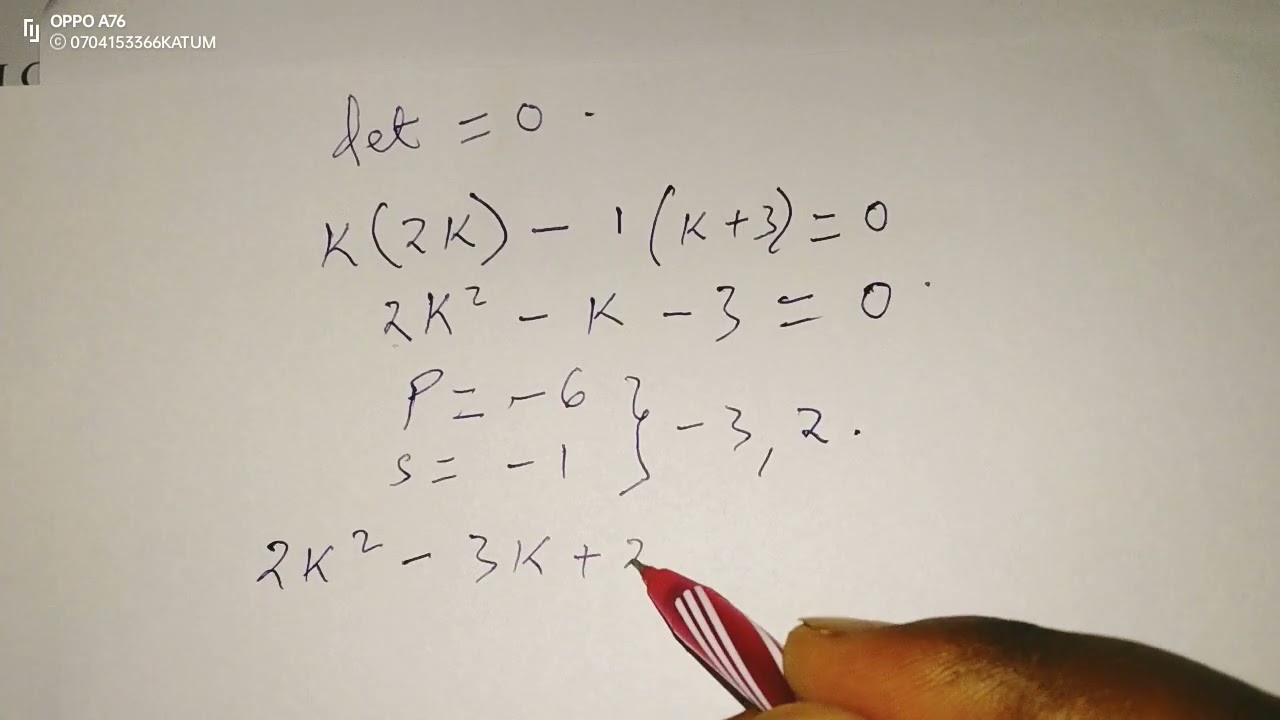 OPPO A76
© 0704153366KATUM
det = 0 .
K(2K) - 1(K+3) = 0
2K² - K - 3 = 0 .
P = -6
S = -1
} -3, 2 .
2K² - 3K + 2